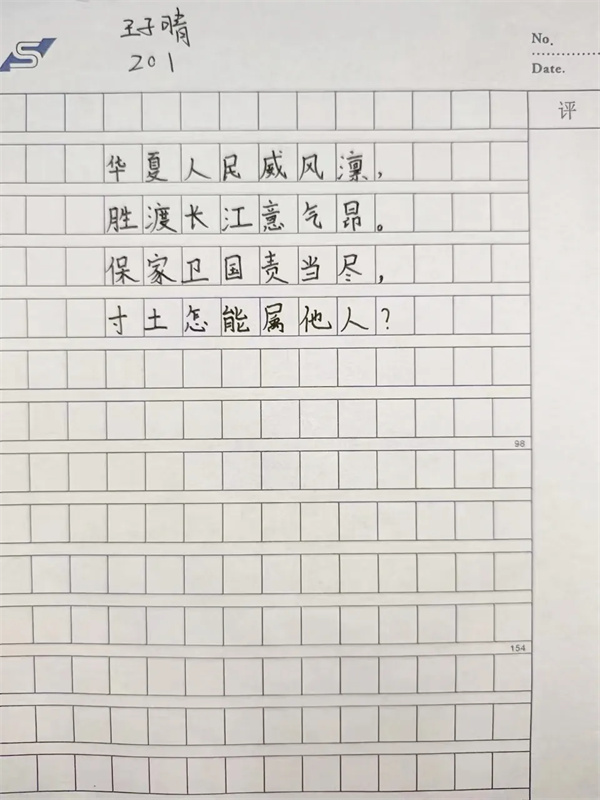 王子晴
201
No.
Date.
评
华夏人民威风凛，
胜渡长江意气昂。
保家卫国责当尽，
寸土怎能属他人？
98
154